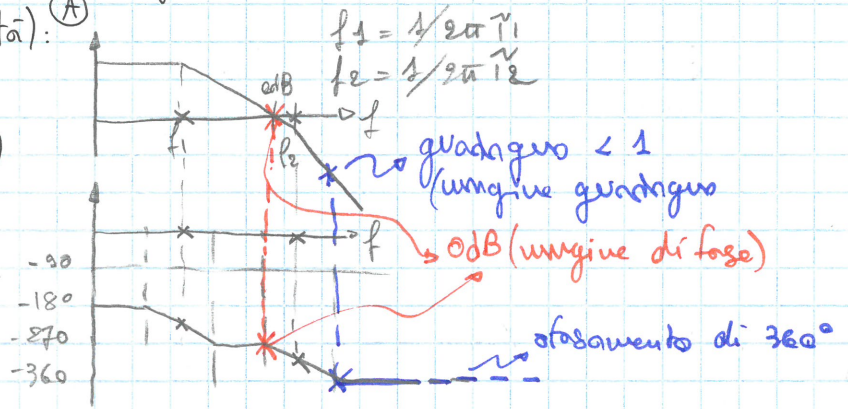 tà):
A
f1 = 1/2π τ̃1
f2 = 1/2π τ̃2
0dB
f
f1
f2
guadagno < 1
(margine guadagno
f
0dB (margine di fase)
-90
-180
-270
-360
sfasamento di 360°